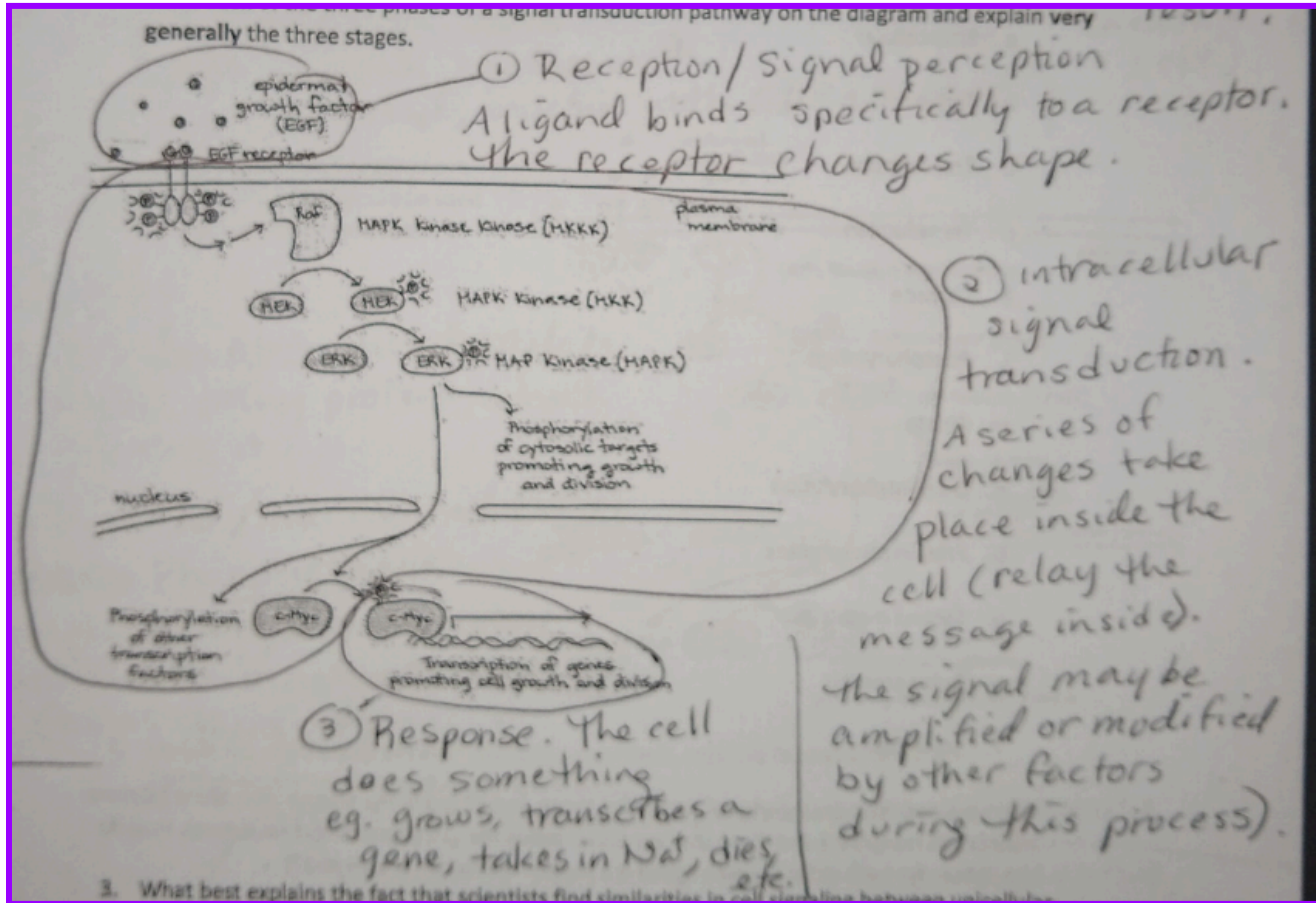 three phases of a signal transduction pathway on the diagram and explain very
generally the three stages.
① Reception/signal perception
A ligand binds specifically to a receptor.
The receptor changes shape.
epidermal
growth factor
(EGF)
EGF receptor
plasma
membrane
Raf
MAPK kinase kinase (MKKK)
MEK
MEK
MAPK kinase (MKK)
ERK
ERK
MAP kinase (MAPK)
Phosphorylation
of cytosolic targets
promoting growth
and division
nucleus
Phosphorylation
of other
transcription
factors
c-Myc
c-Myc
Transcription of genes
promoting cell growth and division
② intracellular
signal
transduction.
A series of
changes take
place inside the
cell (relay the
message inside).
The signal may be
amplified or modified
by other factors
during this process).
③ Response. The cell
does something
eg. grows, transcribes a
gene, takes in Na⁺, dies,
etc.
3. What best explains the fact that scientists find similarities in cell signaling between unicellular